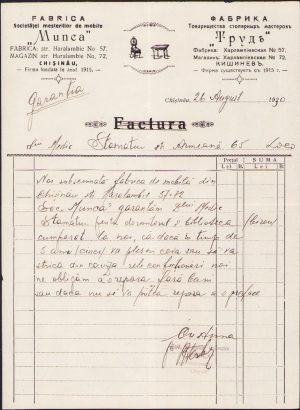 FABRICA
Societăței meșterilor de mobile
„Munca"
FABRICA: str. Haralambie No 57.
MAGAZIN: str. Haralambie No. 72,
CHIȘINĂU,
— Firma fondată în anul 1915. —
ФАБРИКА
Товарищества столярныхъ мастеровъ
„Трудъ"
Фабрика: Харлампіевская № 57.
Магазинъ: Харлампіевская № 72,
КИШИНЕВЪ.
— Фирма существуетъ съ 1915 г. —
Garantia
Chișinău, 26 August 1930
Factura
Medic Stamatiu str Armeană 65 Loco
Prețul
SUMA
Lei B.
Lei B.
Noi subsemnata fabrica de mobilă din
Chișinău str Haralambie 57-72
Soc. Muncă garantăm Dlui Medic
Stamatiu para dormitorul și biblioteca
cumpărat la noi, ca dacă în timp de
5 ani (cinci) va plesni ceva sau se va
strica din cauza relei confecționări noi
ne obligăm a repara fără bani
sau dacă nu se va putea repara a o preface
Cu stima